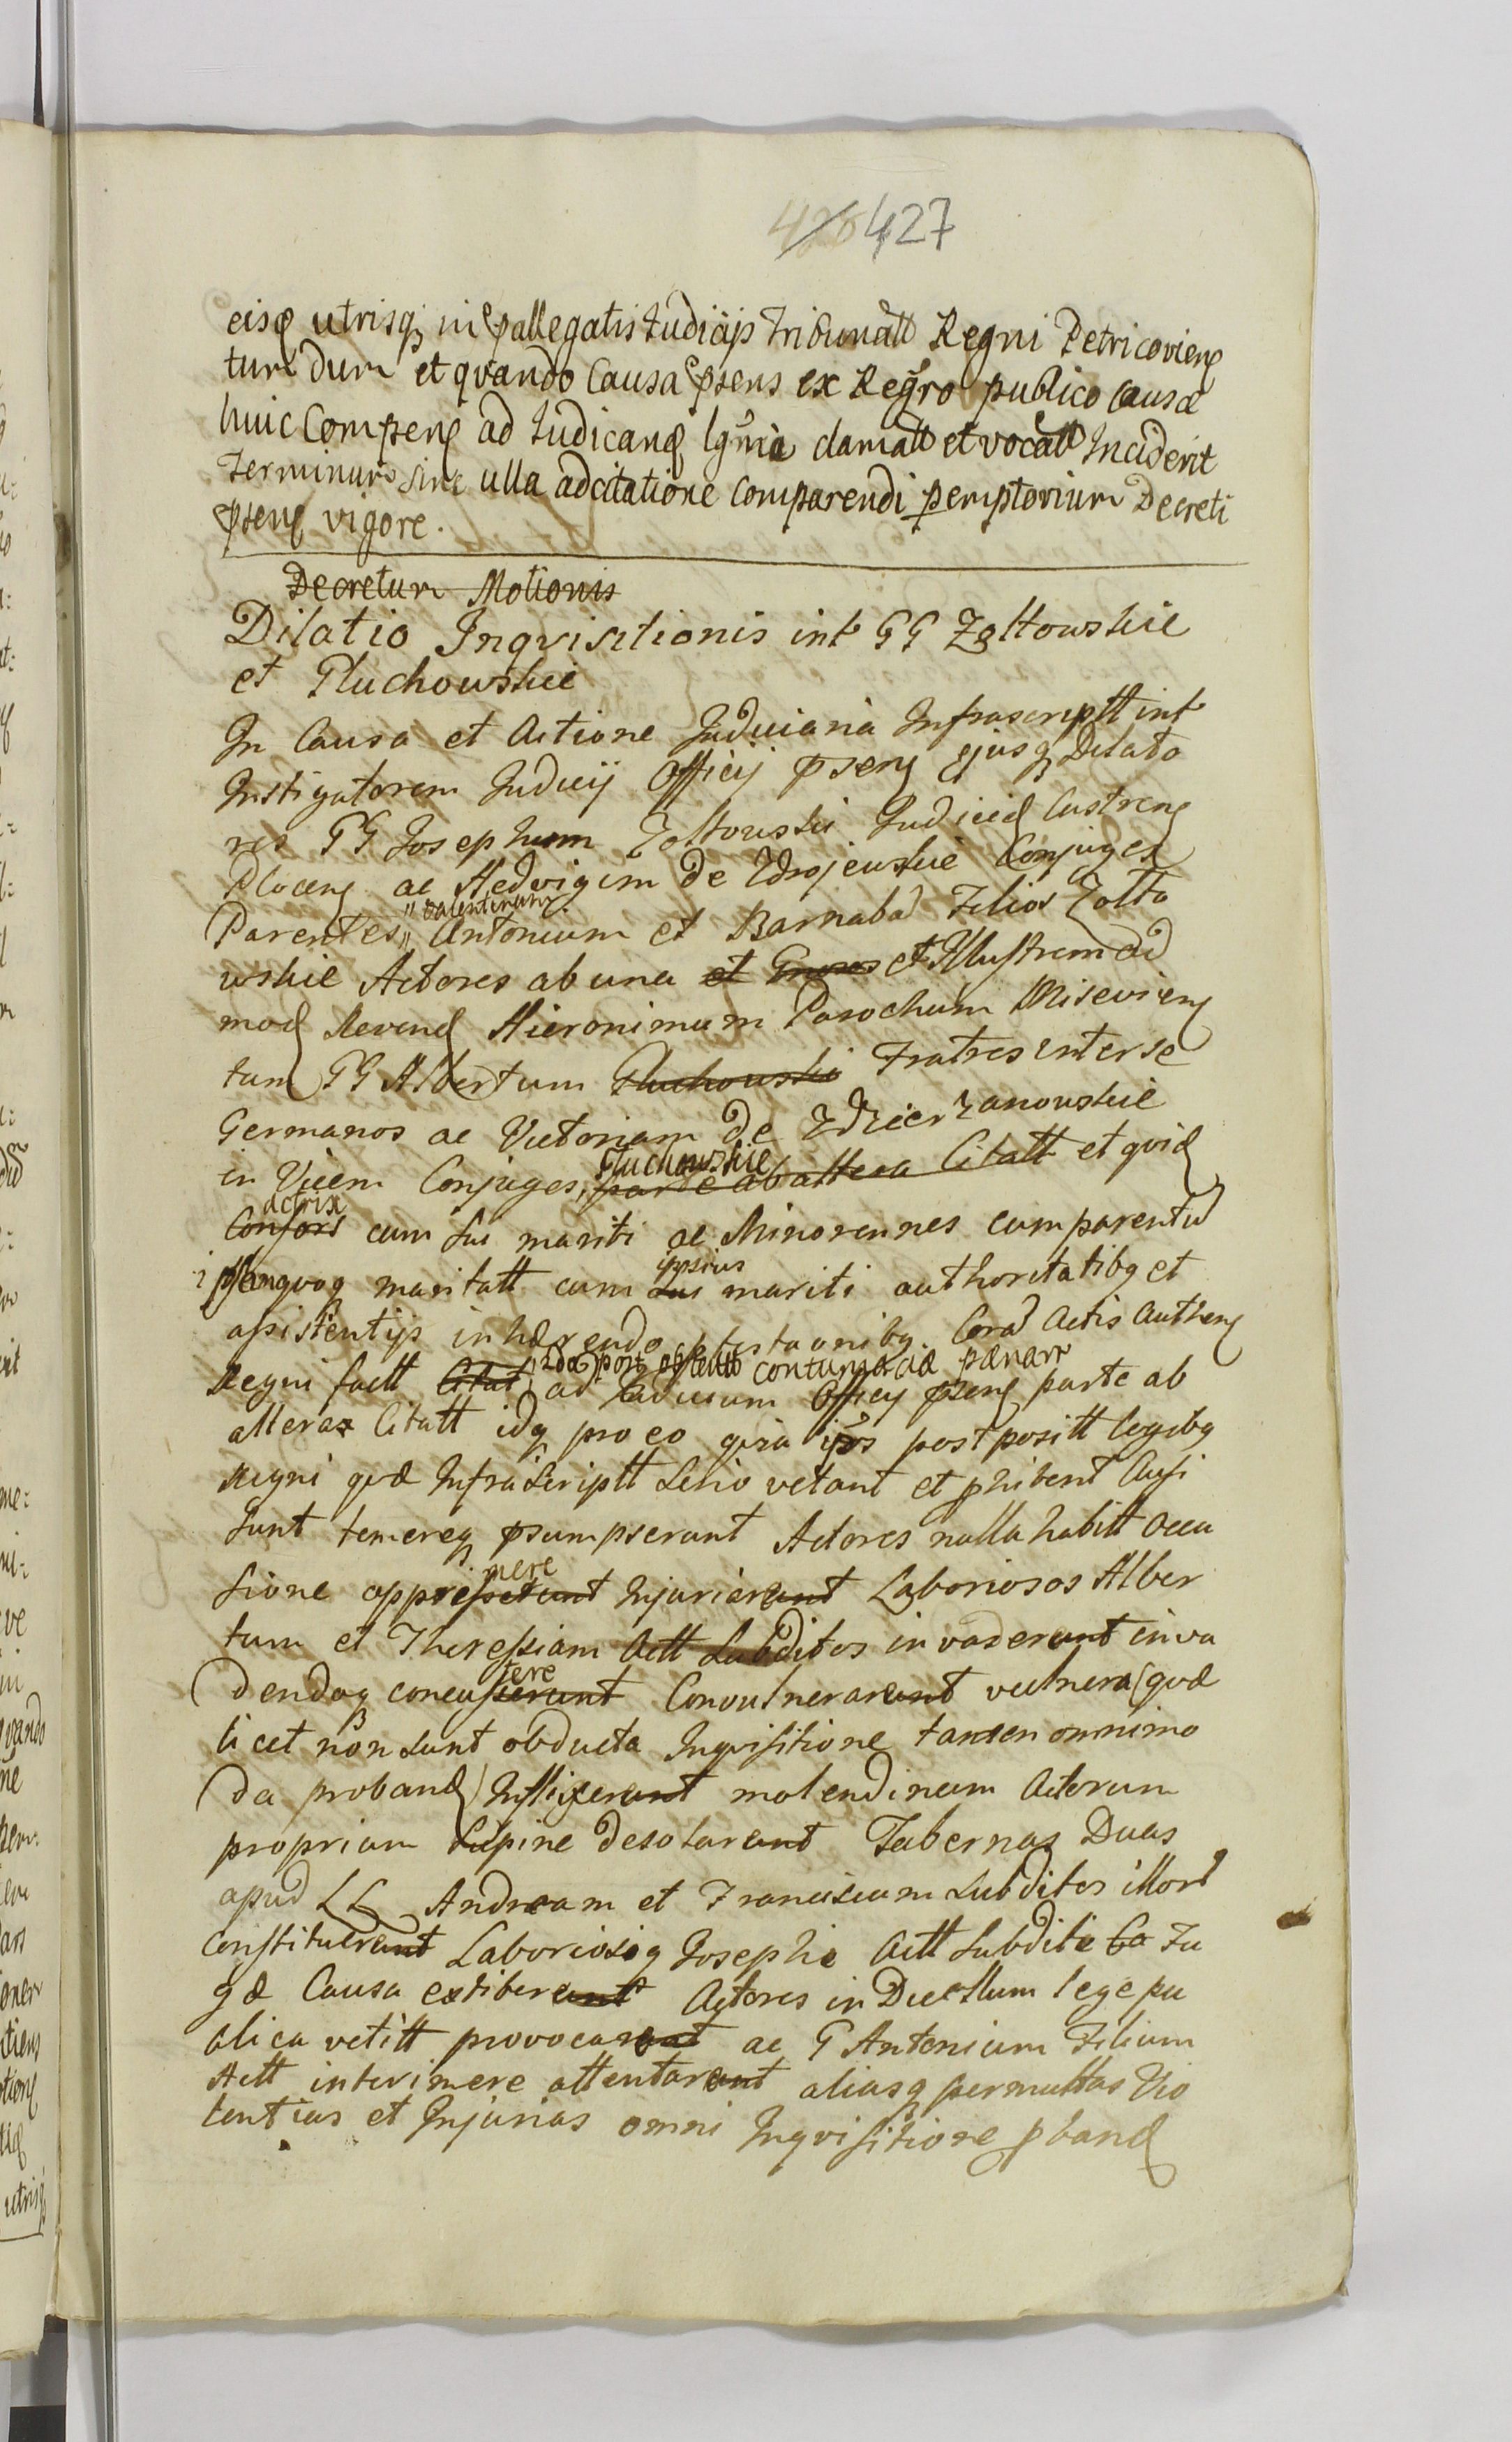 428 427
eisq utrisq in pallegatis Judicijs Tribunatt Regni Petricovien
tum dum et qvando Causa psens ex Regro publico Causæ
huic Competen ad Judicand lgmia clamatt et vocatt Inciderit
Terminum sine ulla adcitatione comparendi pemptorium Decreti
psens vigore.
Decretum Motionis
Dilatio Inqvisitionis int GG Zołtowskie
et Płuchowskie
In Causa et Actione Judiciaria Infrascriptt int
Instigatorem Judicij Officij psens ejusq Delato
res GG Josephum Zołtowski Judicem Castren
Plocen ac Hedvigim de Zdrojewskie Conjuges
Parentes, Valentinum Antonium et Barnabam Filios Zołto
wskie Actores ab una et Gneros et Illustrem ad
mod Revend Hieronimum Parochum Misevien
tum GG Albertum Płuchowski Fratres inter se
Germanos ac Victoriam de Zdzierzanowskie
in Vicem Conjuges, Płuchowskie parte ab altera Citatt et qvid
Consors actrix cum sui mariti ac Minorennes cum parentum
ipsamqvoq maritatt cum sui ipsius mariti authoritatibq et
assistentijs inhærendo ptestaonibq Coram Actis Authen
Regni factt Citat 2da post oftentt contumaciæ pænam ad Judicium Officij psens parte ab
altera Citatt idq pro eo qvia ijdos postpositt legibq
Regni qvæ Infrascriptt serio vetant et phibent Ausi
sunt temereq psumpserunt Actores nulla habitt occa
sione oppresserunt mere Injuriarunt Laboriosos Alber
tum et Theressiam Actt Subditos invaserunt inva
dendoq concusserunt tere Convulnerarunt vulnera (qvæ
licet non sunt obducta Inqvisitione tamen omnimo
da proband) Inflixerunt molendinum Actorum
proprium Supine desolarunt Tabernas Duas
apud LL Andream et Franciscum Subditos illorum
constituerunt Laboriosiq Josephi Actt Subditi Ca Fu
gæ Causa extiterunt Actores in Duellum lege pu
blica vetitt provocarunt ac G Antonium Filium
Actt interimere attentarunt aliasq permultas Vio
lentias et Injurias omni Inqvisitione pband